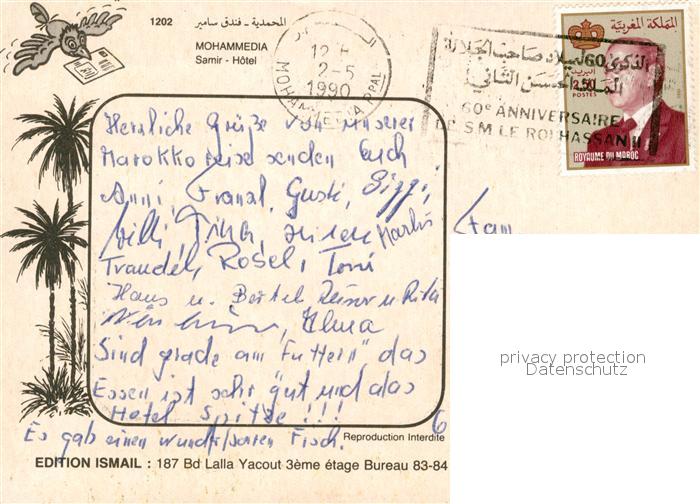 1202
المحمدية - فندق سامير
MOHAMMEDIA
Samir - Hôtel
12 H
2-5
1990
MOHAMMEDIA PPAL
الذكرى 60 لميلاد صاحب الجلالة
الملك الحسن الثاني
60e ANNIVERSAIRE
DE S M LE ROI HASSAN II
المملكة المغربية
البريد
2,50
POSTES
ROYAUME DU MAROC
Herzliche Grüße von unserer
Marokkoreise senden Euch
Anni, Franzl, Gusti, Sizzi,
Willi,
Traudel, Rosel, Toni
Hans u. Bertel, u Rita
Elma
Sind grade am "Futtern" das
Essen ist sehr gut und das
Hotel Spitze !!!
Es gab einen wunderbaren Fisch.
Fam
6
privacy protection
Datenschutz
Reproduction Interdite
EDITION ISMAIL : 187 Bd Lalla Yacout 3ème étage Bureau 83-84